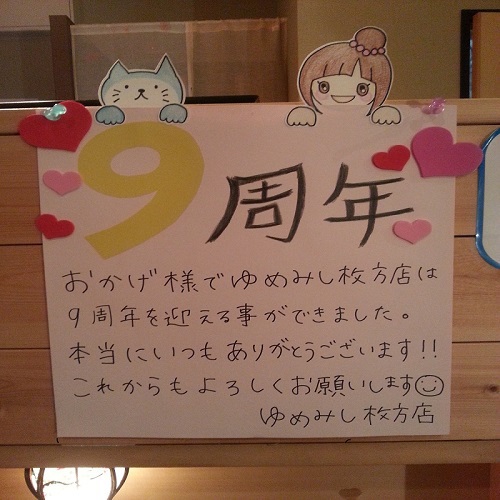 9周年
おかげ様でゆめみし枚方店は
9周年を迎える事ができました。
本当にいつもありがとうございます!!
これからもよろしくお願いします☺
ゆめみし枚方店